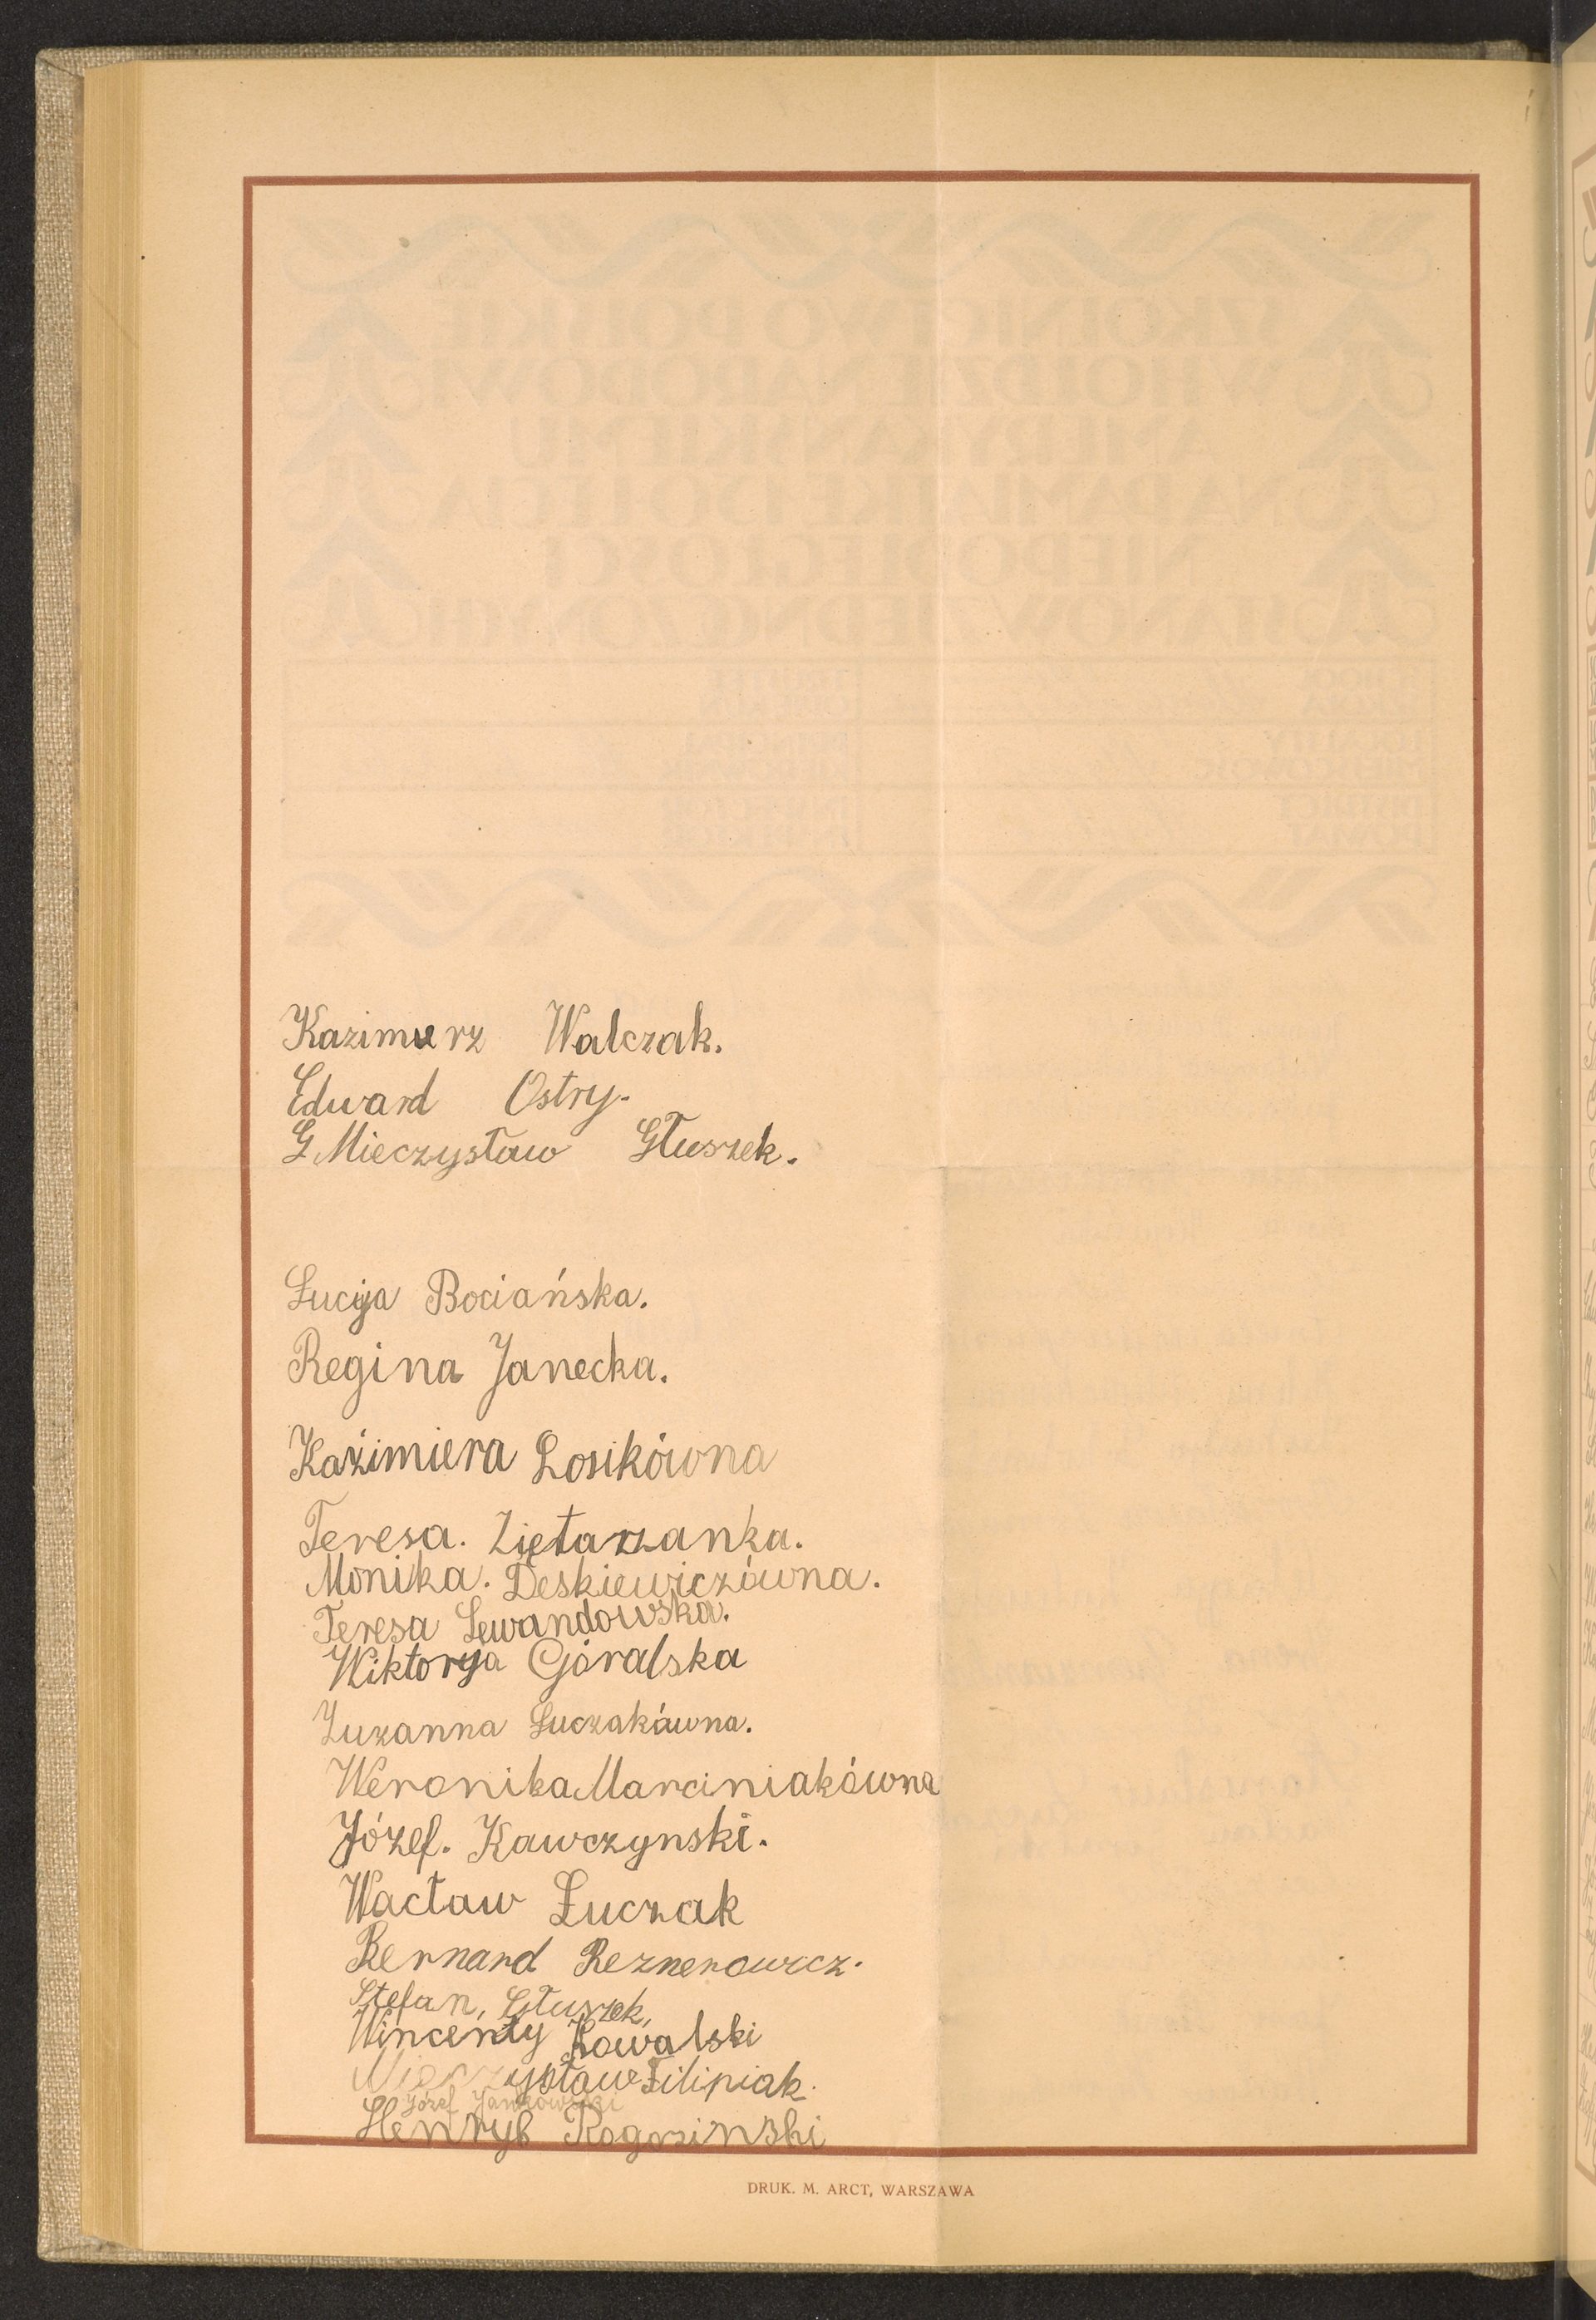 Kazimierz Walczak.
Edward Ostry.
G Mieczysław Głuszek.
Łucyja Bociańska.
Regina Janecka.
Kaźimiera Łosikówna
Teresa. Ziętarzanka.
Monika. Deskiewiczówna.
Teresa Lewandowska.
Wiktorya Góralska
Zuzanna Łuczakówna.
Weronika Marciniakówna
Józef. Kawczynski.
Wacław Łuczak
Bernard Reznerowicz.
Stefan, Głuszek,
Wincenty Kowalski
Mieczysław Filipiak.
Józef Jankowski
Henryk Rogozinski
DRUK. M. ARCT, WARSZAWA